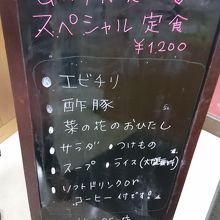 スペシャル定食
¥1,200
・エビチリ
・酢豚
・菜の花のおひたし
・サラダ・つけもの
・スープ・ライス(大盛無料)
・ソフトドリンクor
コーヒー付です。